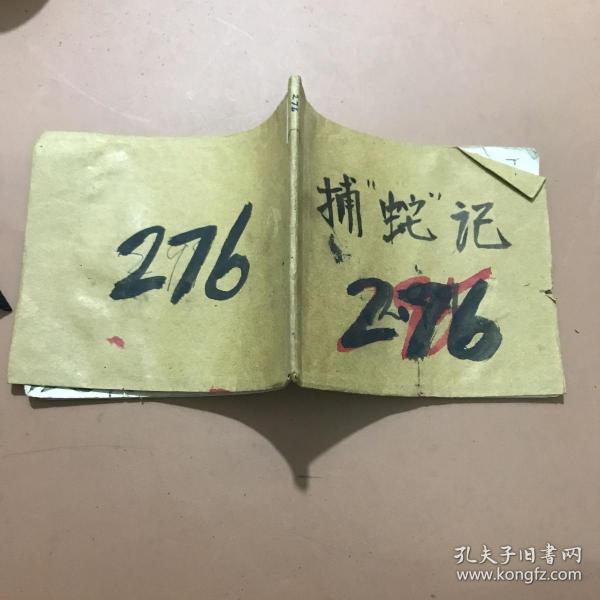 276
276
捕"蛇"记
276
孔夫子旧书网
www.kongfz.com